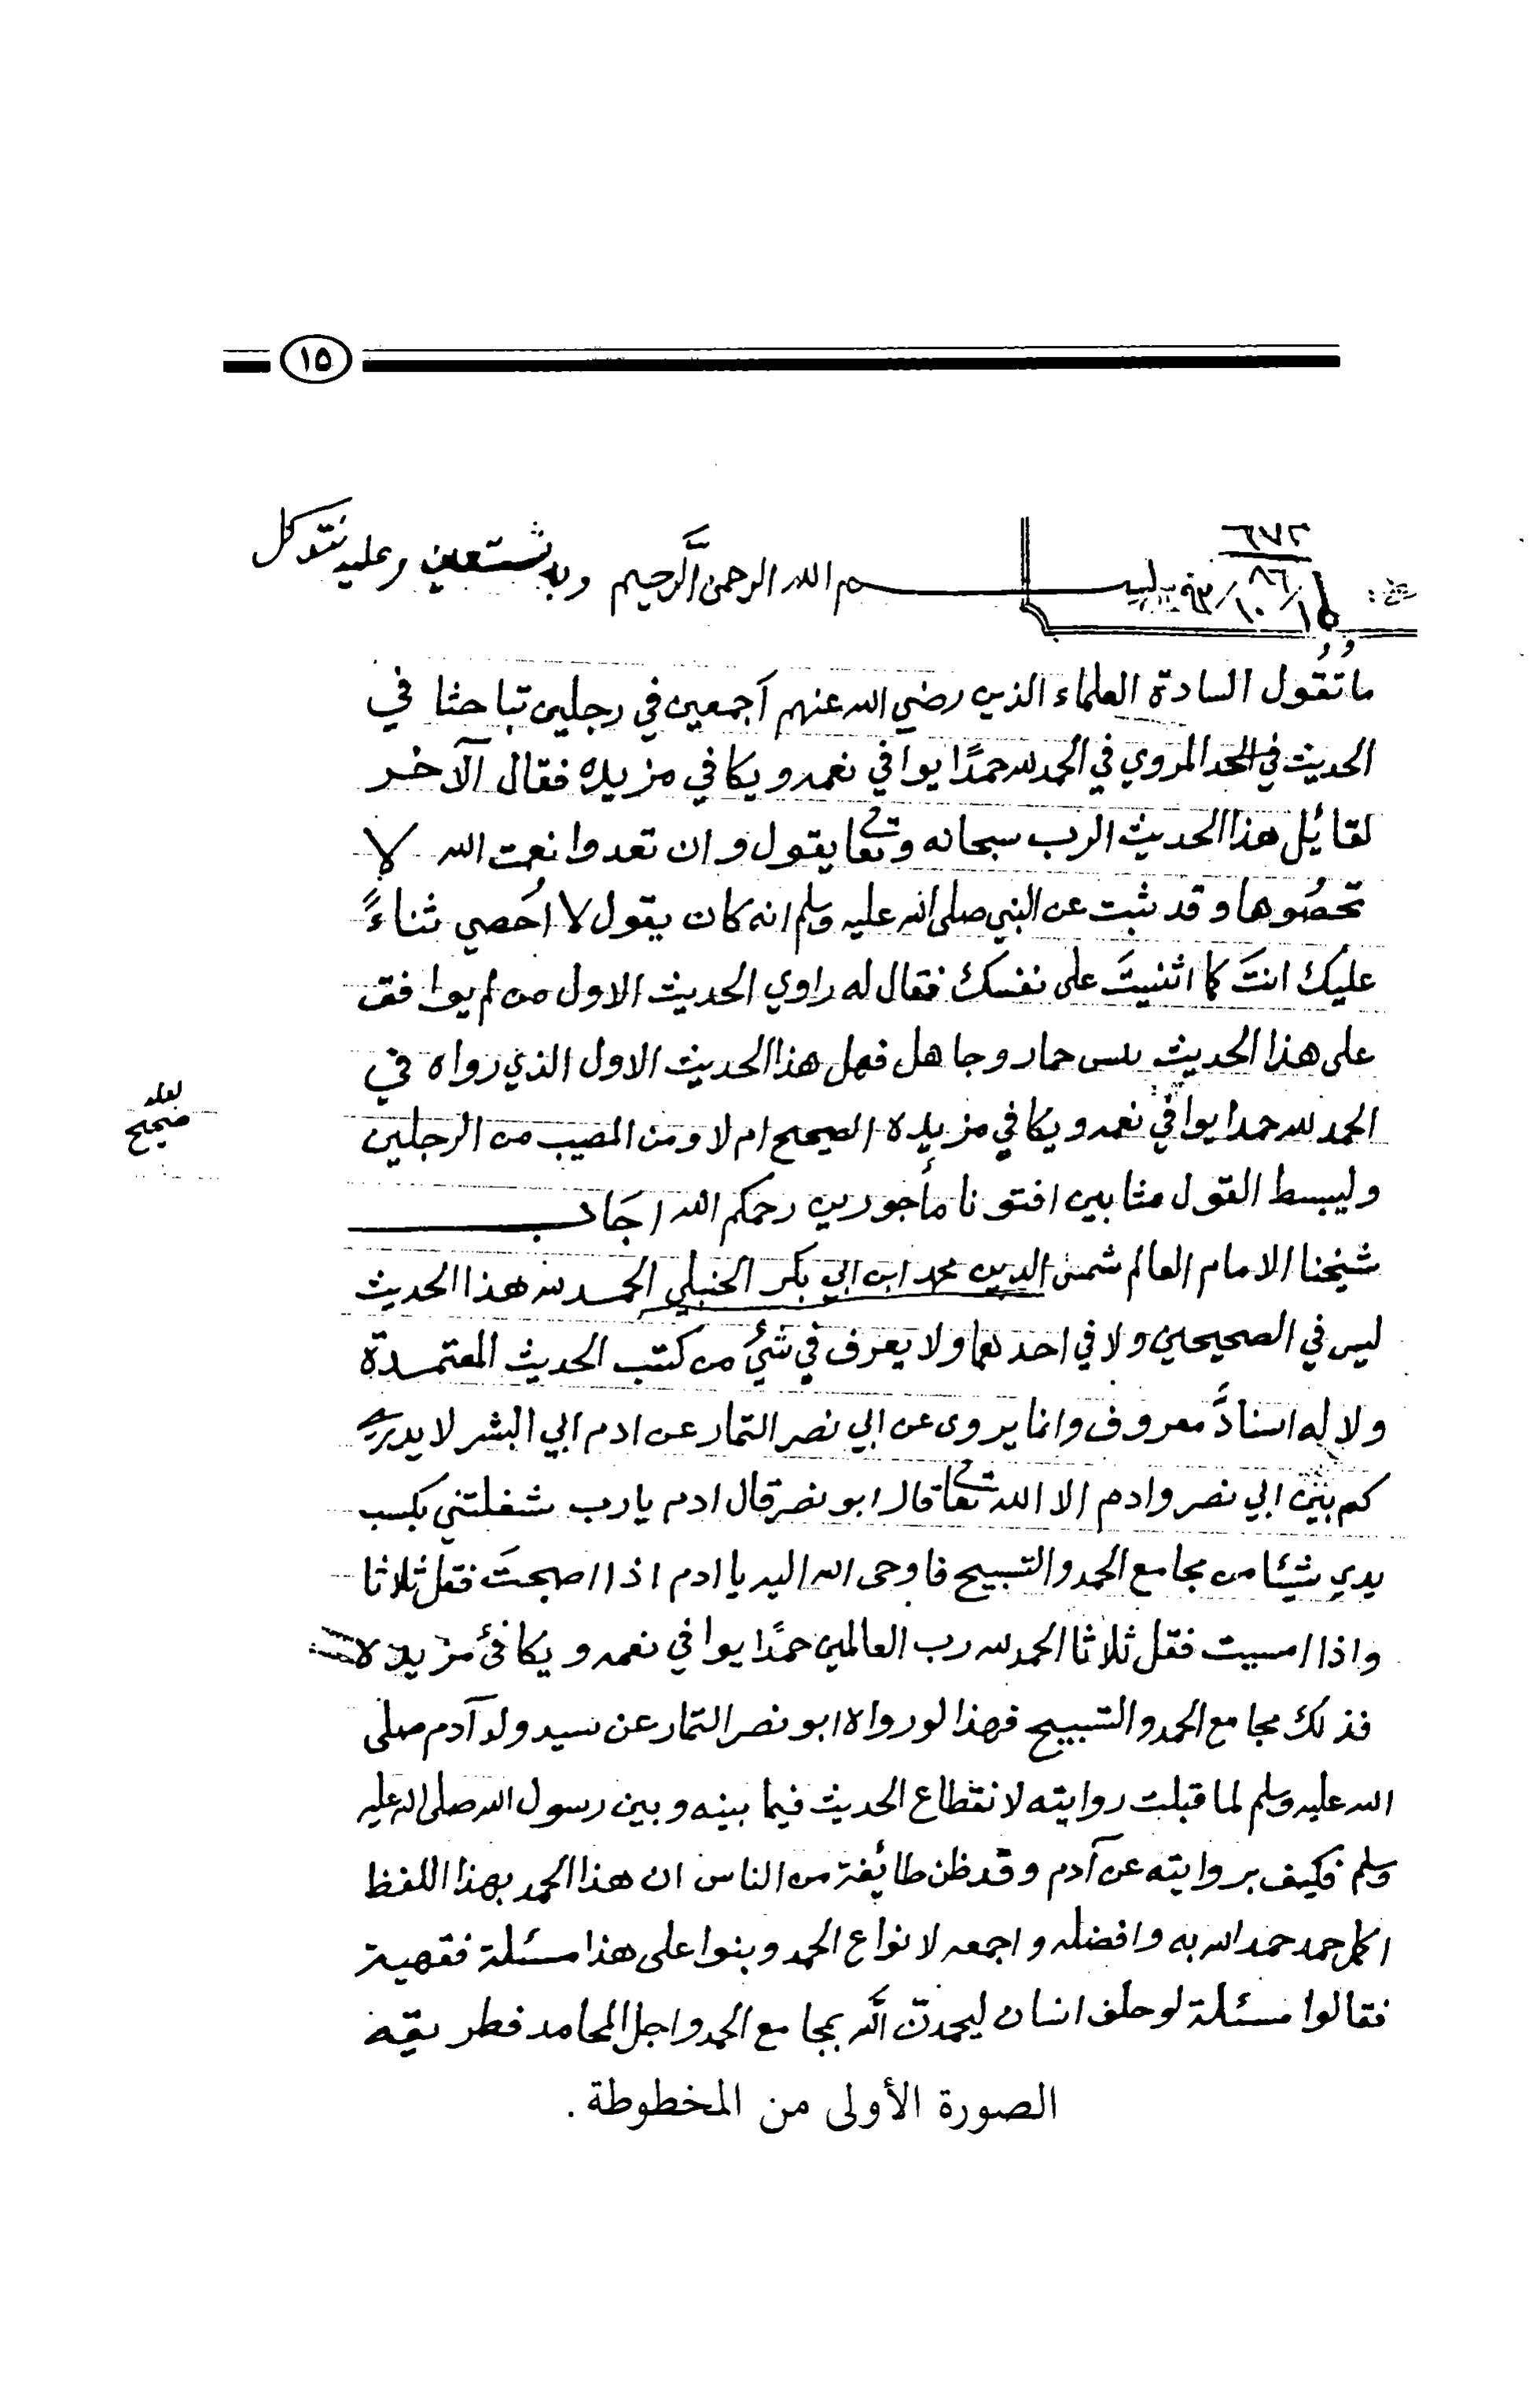 ١٥
٦٧٢
٨٦
بسم الله الرحمن الرحيم وبه نستعين وعليه نتوكل
ما تقول السادة العلماء الذين رضي الله عنهم آجمعين في رجلين تباحثا في
الحديث في الحمد المروي في الحمد لله حمدًا يوافي نعمه ويكافي مزيده فقال الآخر
لقائل هذا الحديث الرب سبحانه وتعالى يقول وان تعدوا نعمت الله لا
تحصُوها وقد ثبت عن النبي صلى الله عليه وسلم انه كان يقول لا اُحصي ثناءً
عليك انتَ كما اثنيتَ على نفسك فقال له راوي الحديث الاول من لم يوافق
على هذا الحديث حمار وجاهل فهل هذا الحديث الاول الذي رواه في
الحمد لله حمدا يوافي نعمه ويكافي مزيده الصحيح ام لا ومن المصيب من الرجلين
لعله
صحيح
وليبسط القول مثابين افتونا مأجورين رحمكم الله اجَاب
شيخنا الامام العالم شمس الدين محمد ابن ابي بكر الحنبلي الحمد لله هذا الحديث
ليس في الصحيحين ولا في احدهما ولا يعرف في شيئ من كتب الحديث المعتمدة
ولا له اسنادً معروف وانما يروى عن ابي نصر التمار عن ادم ابي البشر لا يدري
كم بين ابي نصر وادم الا الله تعالى قال ابو نصر قال ادم يا رب شغلتني بكسب
يدي شيئا من مجامع الحمد والتسبيح فاوحى الله اليه يا ادم اذا اصبحتَ فقل ثلاثا
واذا امسيت فقل ثلاثا الحمد لله رب العالمين حمدًا يوافي نعمه ويكافئ مزيده
فذلك مجامع الحمد والتسبيح فهذا لو رواه ابو نصر التمار عن سيد ولد آدم صلى
الله عليه وسلم لما قبلت روايته لانقطاع الحديث فيما بينه وبين رسول الله صلى الله عليه
وسلم فكيف بروايته عن آدم وقد ظن طائفة من الناس ان هذا الحمد بهذا اللفظ
اكمل حمد حمد الله به وافضله واجمعه لانواع الحمد وبنوا على هذا مسئلة فقهية
فقالوا مسئلة لو حلف انسان ليحمدنّ الله بمجامع الحمد واجل المحامد فطريقه
الصورة الأولى من المخطوطة .